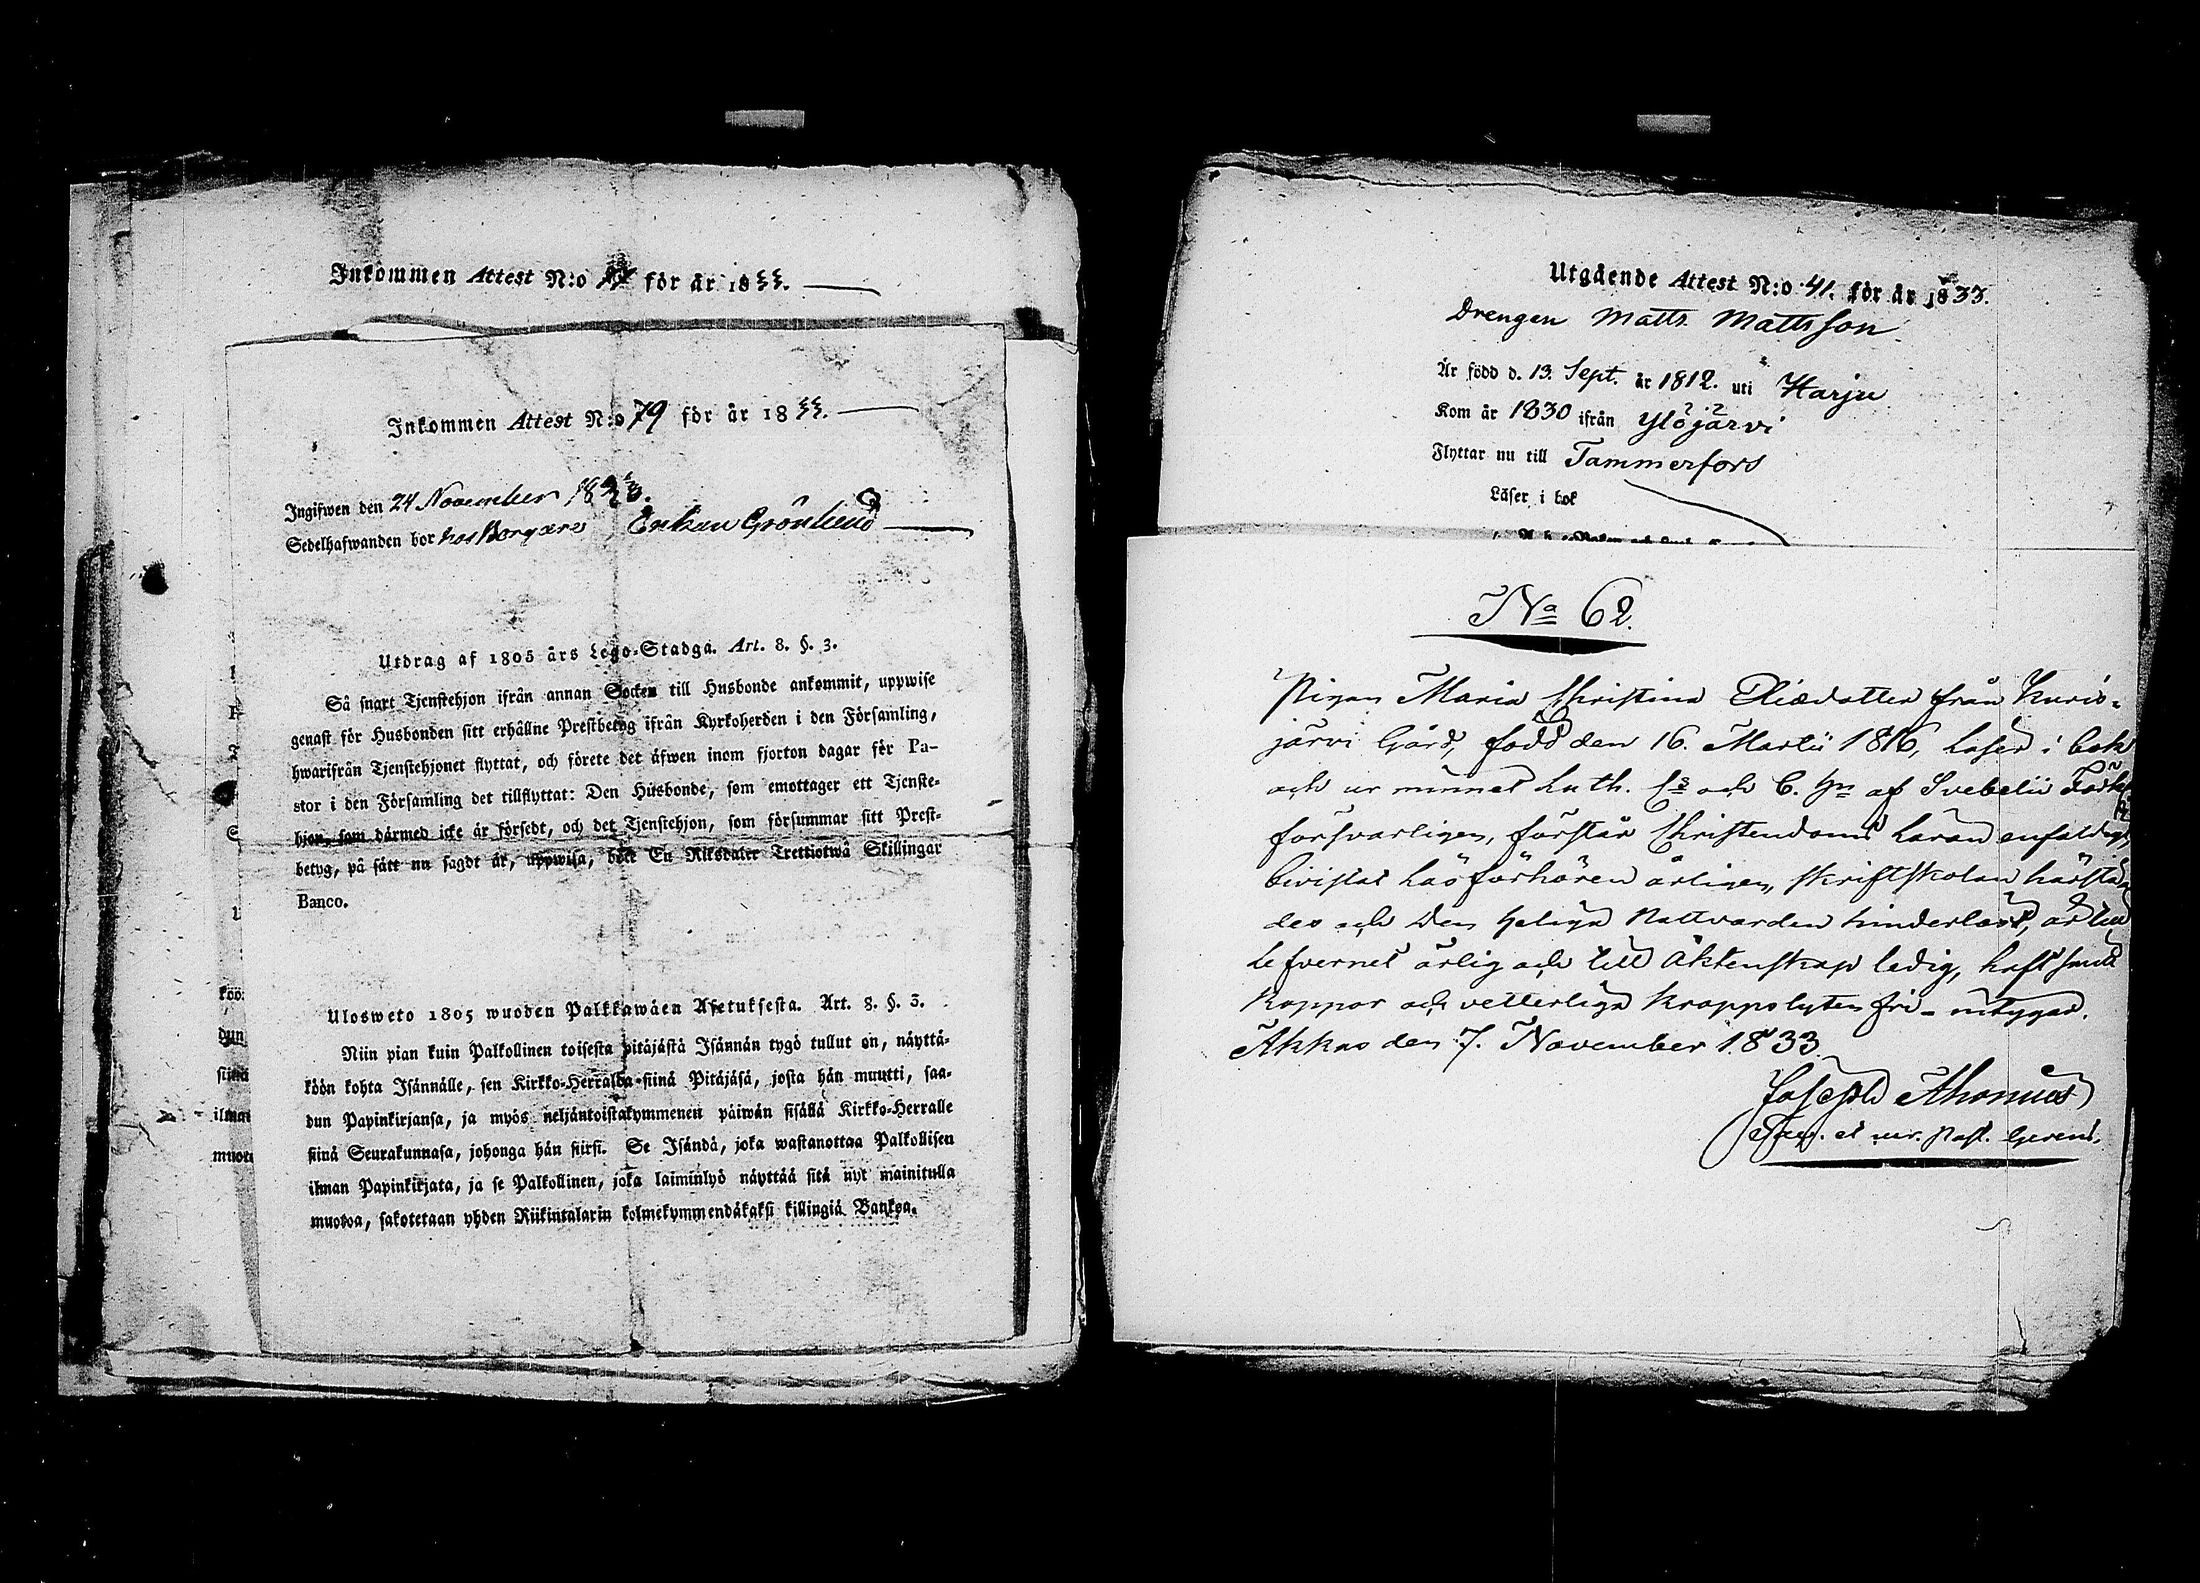 Inkommen Attest N:o för år 1833.
Inkommen Attest N:o 79 för år 1833.
Ingifwen den 24 November 1833.
Sedelhafwanden bor hos Borgare Enkan Grönlund
Utdrag af 1805 års Lego-Stadga. Art. 8. §. 3.
Så snart Tjenstehjon ifrån annan Socken till Husbonde ankommit, uppwise
genast för Husbonden sitt erhållne Prestbetyg ifrån Kyrkoherden i den Församling,
hwarifrån Tjenstehjonet flyttat, och förete det äfwen inom fjorton dagar för Pa-
stor i den Församling det tillflyttat: Den Husbonde, som emottager ett Tjenste-
hjon, som därmed icke är försedt, och det Tjenstehjon, som försummar sitt Prest-
betyg, på sätt nu sagdt är, uppwisa, böte En Riksdaler Trettiotwå Skillingar
Banco.
Ulosweto 1805 wuoden Palkkawäen Asetuksesta. Art. 8. §. 3.
Niin pian kuin Palkollinen toisesta pitäjästä Isännän tygö tullut on, näyttä-
köön kohta Isännälle, sen Kirkko-Herralda siinä Pitäjäsä, josta hän muutti, saa-
dun Papinkirjansa, ja myös neljäntoistakymmenen päiwän sisällä Kirkko-Herralle
siinä Seurakunnasa, johonga hän siirsi. Se Isändä, joka wastanottaa Palkollisen
ilman Papinkirjata, ja se Palkollinen, joka laiminlyö näyttää sitä nyt mainitulla
muotoa, sakotetaan yhden Riikintalarin kolmekymmendäkaksi killingiä Bankoa.
köö:
dun
siinä
ilman
muot
Utgående Attest N:o 41. för år 1833.
Drengen Matts Mattsson
Är född d. 13. Sept. år 1812. uti Harju
Kom år 1830 ifrån Ylöjärvi
Flyttar nu till Tammerfors
Läser i bok
No 62.
Pigan Maria Christina Eliædotter från Kuris-
järvi Gård, född den 16. Martii 1816, läser i bok
och ur minnet Luth. Cs och C. Hn af Svebelii Förkl
försvarligen, förstår Christendoms läran enfaldigt,
bivistat Läsförhören årligen, skriftskolan härstä
des och Den Heliga Nattvarden hinderlöst, är till
lefvernet ärlig och till Äktenskap ledig, haft smitt
koppor och vetterliga kroppslyten fri - intygar.
Akkas den 7. November 1833
Joseph Ahonius
et Past. Gerens.